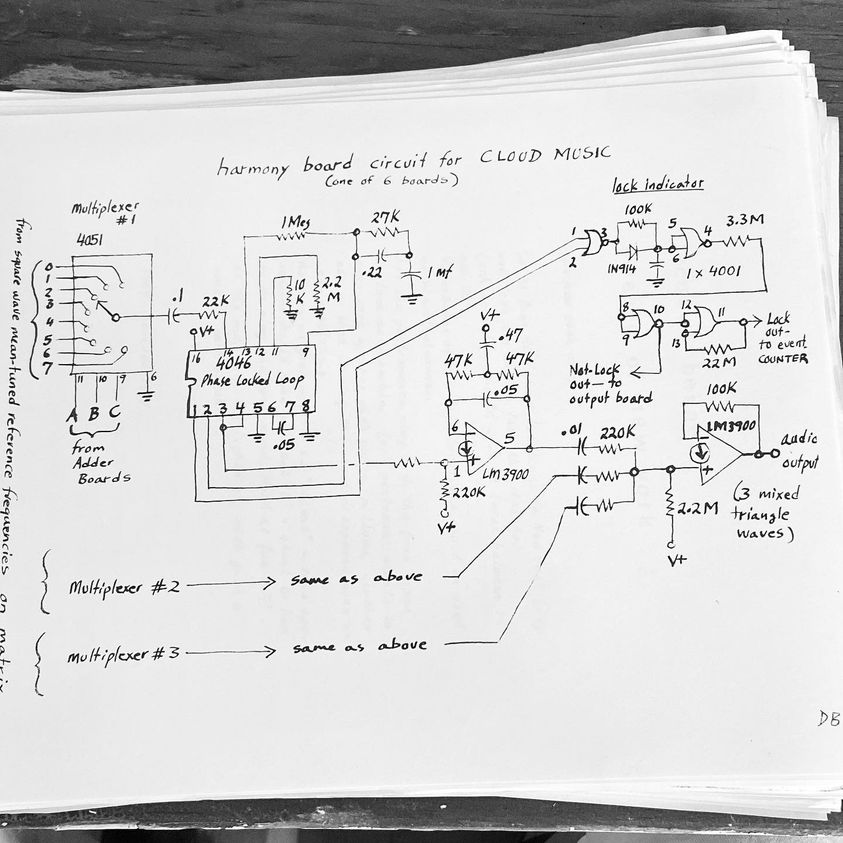 harmony board circuit for CLOUD MUSIC
(one of 6 boards)
lock indicator
Multiplexer
#1
4051
from square wave mean-tuned reference frequencies on matrix
0
1
2
3
4
5
6
7
11
10
9
6
A B C
from
Adder
Boards
.1
22K
V+
1Meg
27K
.22
1mf
10
K
2.2
M
16
14
13
12
11
9
4046
Phase Locked Loop
1 2 3 4 5 6 7 8
.05
V+
.47
47K
47K
.05
6
5
1
LM3900
220K
V+
1
2
3
100K
1N914
5
6
4
3.3M
1 x 4001
8
9
10
12
13
11
22M
Lock
out—
to event
COUNTER
Not-Lock
out— to
output board
.01
220K
100K
LM3900
2.2M
V+
audio
output
(3 mixed
triangle
waves)
Multiplexer #2
same as above
Multiplexer #3
same as above
DB